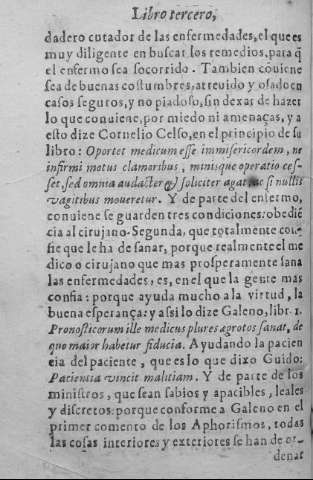 Libro tercero,
dadero cutador de las enfermedades, el que es
muy diligente en buscar los remedios, para q̃
el enfermo sea socorrido. Tambien cõuiene
sea de buenas costumbres, atreuido y osado en
casos seguros, y no piadoso, sin dexar de hazer
lo que conuiene, por miedo ni amenaças, y a
esto dize Cornelio Celso, en el principio de su
libro: Oportet medicum esse immisericordem, ne
infirmi motus clamoribus, minisque operatio ces-
set, sed omnia audacter & soliciter agat si nullis
vagitibus moueretur. Y de parte del enfermo,
conuiene se guarden tres condiciones: obediẽ
cia al cirujano. Segunda, que totalmente con-
fie que le ha de sanar, porque realmente el me
dico o cirujano que mas prosperamente sana
las enfermedades, es, en el que la gente mas
confia: porque ayuda mucho a la virtud, la
buena esperança: y assi lo dize Galeno, libr. 1.
Pronosticorum ille medicus plures agrotos sanat, de
quo maior habetur fiducia. Ayudando la pacien
cia del paciente, que es lo que dixo Guido:
Patientia vincit malitiam. Y de parte de los
ministros, que sean sabios y apacibles, leales
y discretos: porque conforme a Galeno en el
primer comento de los Aphorismos, todas
las cosas interiores y exteriores se han de or-
denar